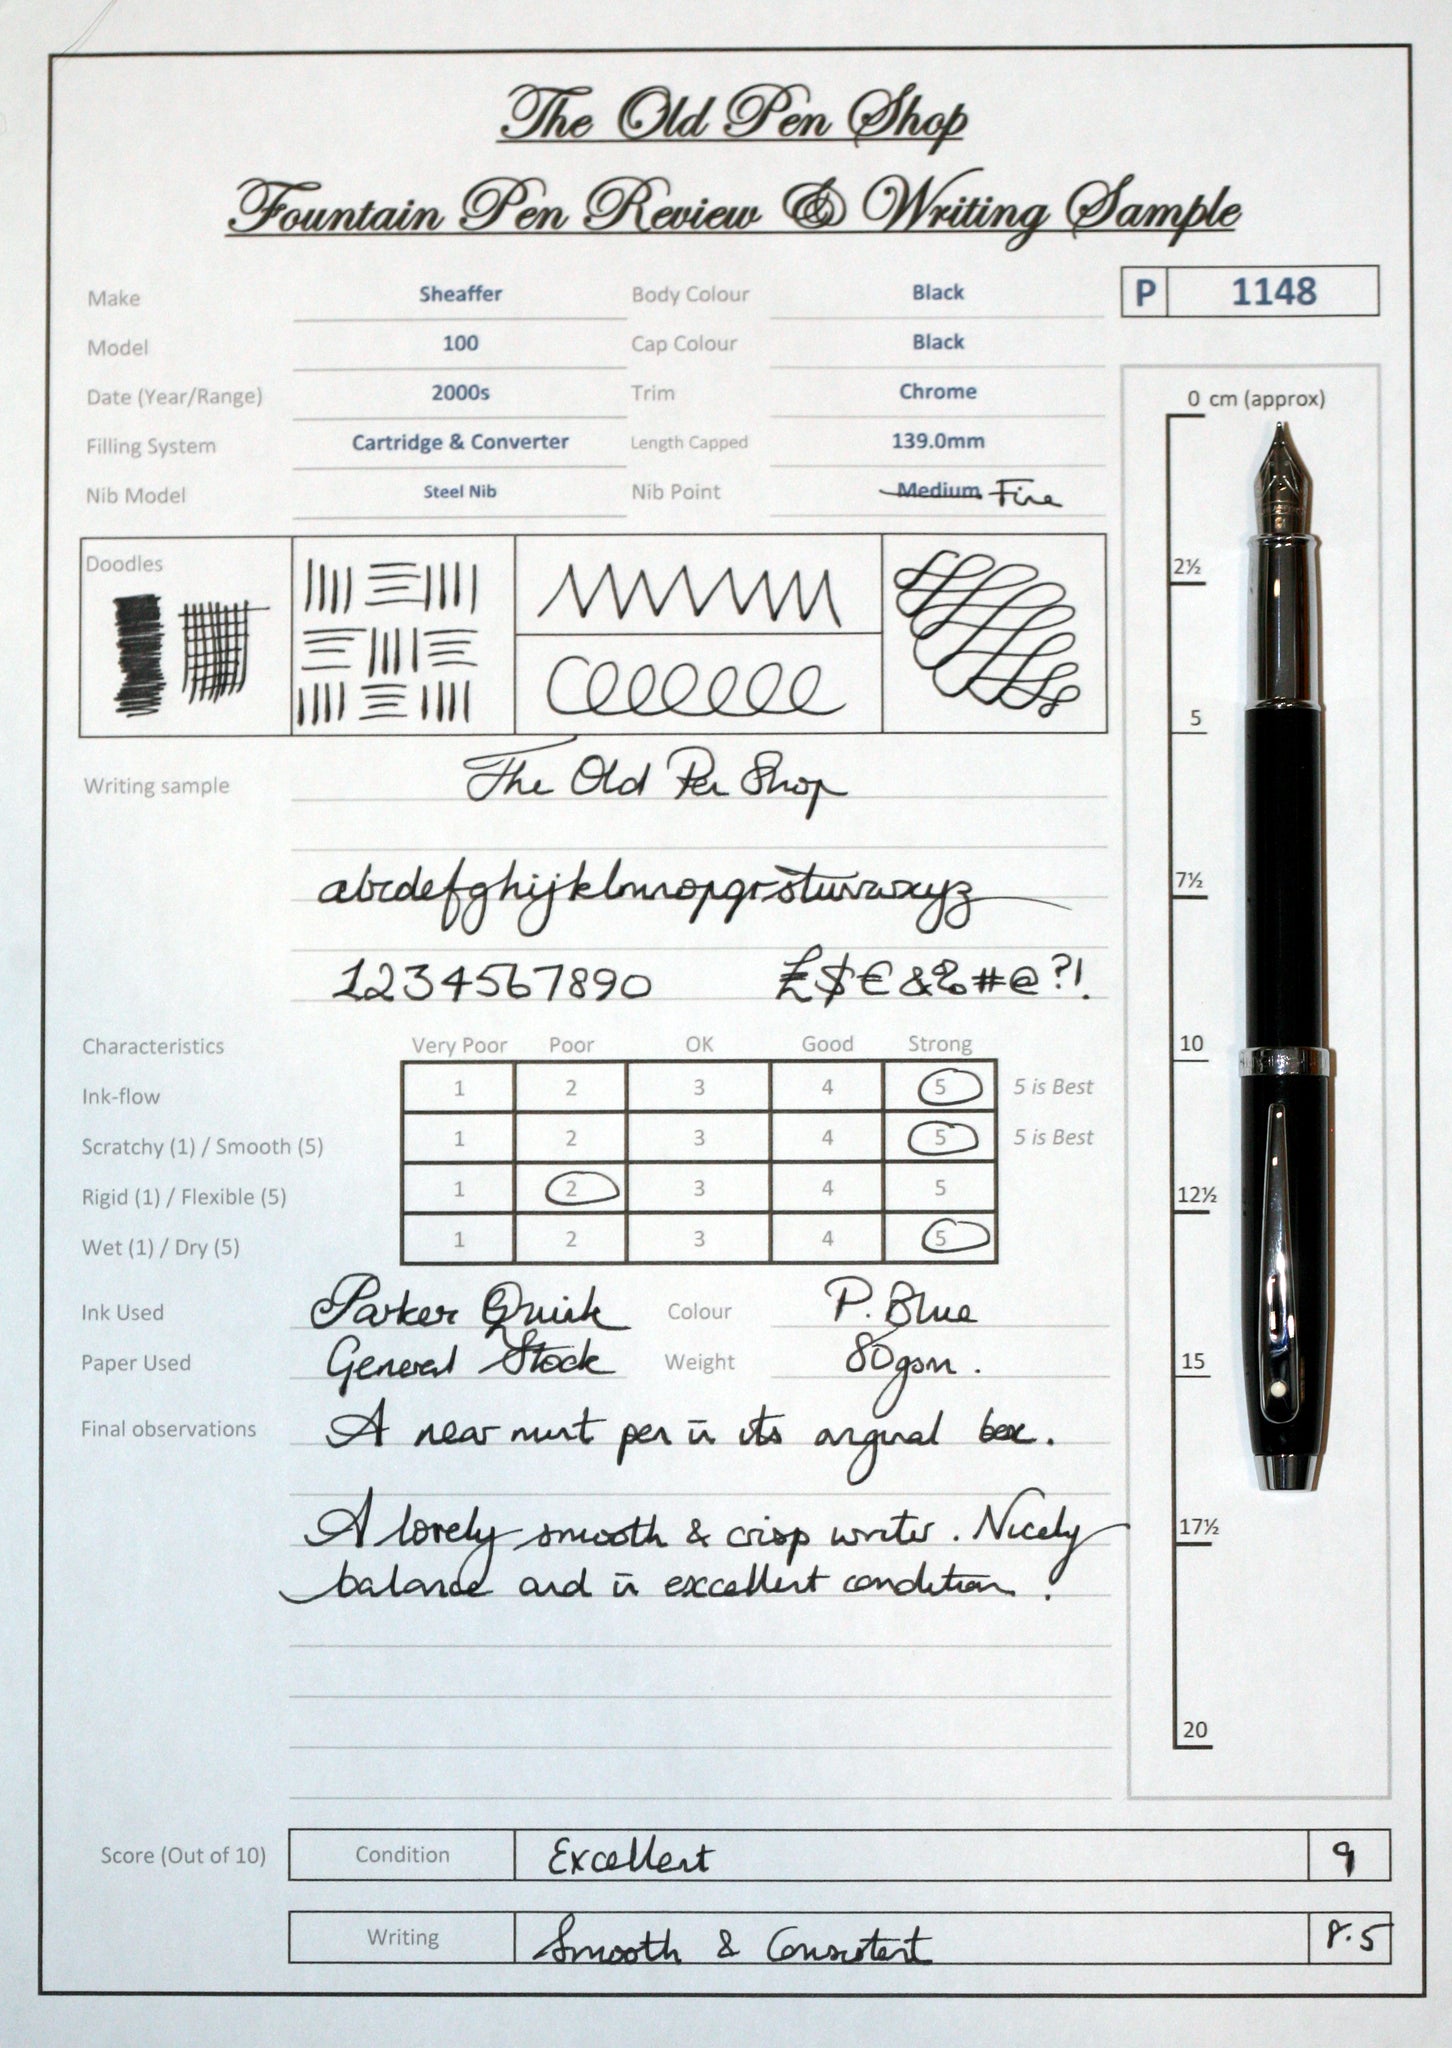 The Old Pen Shop
Fountain Pen Review & Writing Sample
Make Sheaffer Body Colour Black P 1148
Model 100 Cap Colour Black
Date (Year/Range) 2000s Trim Chrome
Filling System Cartridge & Converter Length Capped 139.0mm
Nib Model Steel Nib Nib Point Medium Fine
0 cm (approx)
2½
5
7½
10
12½
15
17½
20
Doodles
Writing sample The Old Pen Shop
abcdefghijklmnopqrstuvwxyz
1234567890 £$€&%#@?!.
Characteristics Very Poor Poor OK Good Strong
Ink-flow 1 2 3 4 5 5 is Best
Scratchy (1) / Smooth (5) 1 2 3 4 5 5 is Best
Rigid (1) / Flexible (5) 1 2 3 4 5
Wet (1) / Dry (5) 1 2 3 4 5
Ink Used Parker Quink Colour P. Blue
Paper Used General Stock Weight 80gsm.
Final observations A near mint pen in its original box.
A lovely smooth & crisp writer. Nicely
balance and in excellent condition.
Score (Out of 10) Condition Excellent 9
Writing Smooth & Consistent 8.5